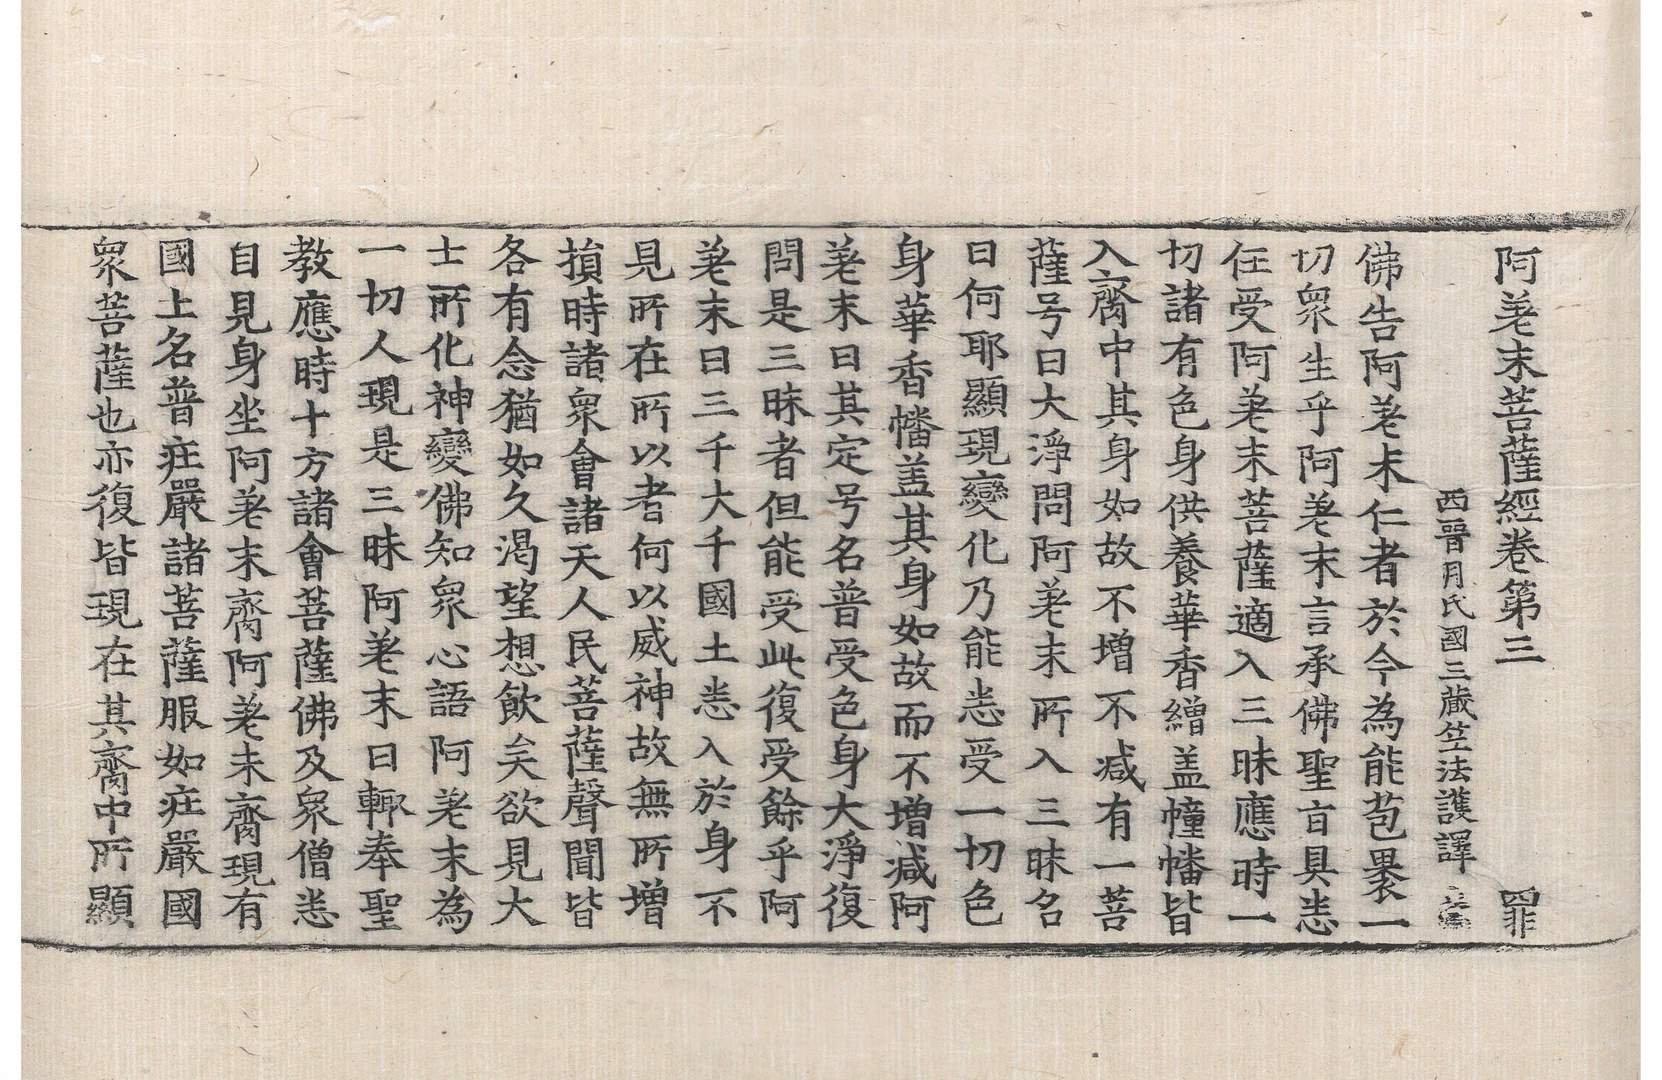 阿差末菩薩經卷第三 罪
西晉月氏國三藏竺法護譯
佛告阿差末仁者於今為能苞褁一
切衆生乎阿差末言承佛聖旨具悉
任受阿差末菩薩適入三昧應時一
切諸有色身供養華香繒盖幢幡皆
入齎中其身如故不增不減有一菩
薩号曰大淨問阿差末所入三昧名
曰何耶顯現變化乃能悉受一切色
身華香幡盖其身如故而不增減阿
差末曰其定号名普受色身大淨復
問是三昧者但能受此復受餘乎阿
差末曰三千大千國土悉入於身不
見所在所以者何以威神故無所增
損時諸衆會諸天人民菩薩聲聞皆
各有念猶如久渴望想飲矣欲見大
士所化神變佛知衆心語阿差末為
一切人現是三昧阿差末曰輙奉聖
教應時十方諸會菩薩佛及衆僧悉
自見身坐阿差末齎阿差末齎現有
國土名普莊嚴諸菩薩服如莊嚴國
衆菩薩也亦復皆現在其齎中所顯